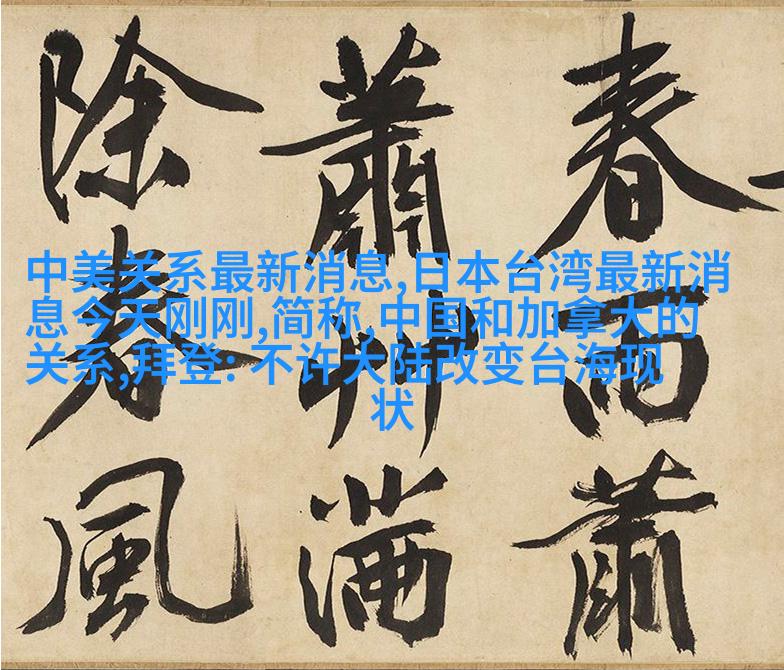 中美关系最新消息,日本台湾最新消
息今天刚刚,简称,中国和加拿大的
关系,拜登: 不许大陆改变台海现
状
春雨蕭
蕭艸滿
除春風